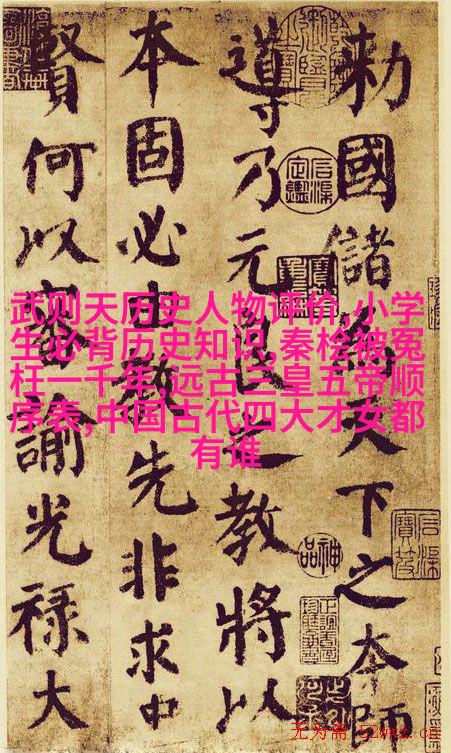 勅國儲為天下之本師
導乃元良之教將以
本固必由教先非求中
賢何以審諭光祿大
武则天历史人物评价,小学
生必背历史知识,秦桧被冤
枉一千年,远古三皇五帝顺
序表,中国古代四大才女都
有谁
神品
无为斋